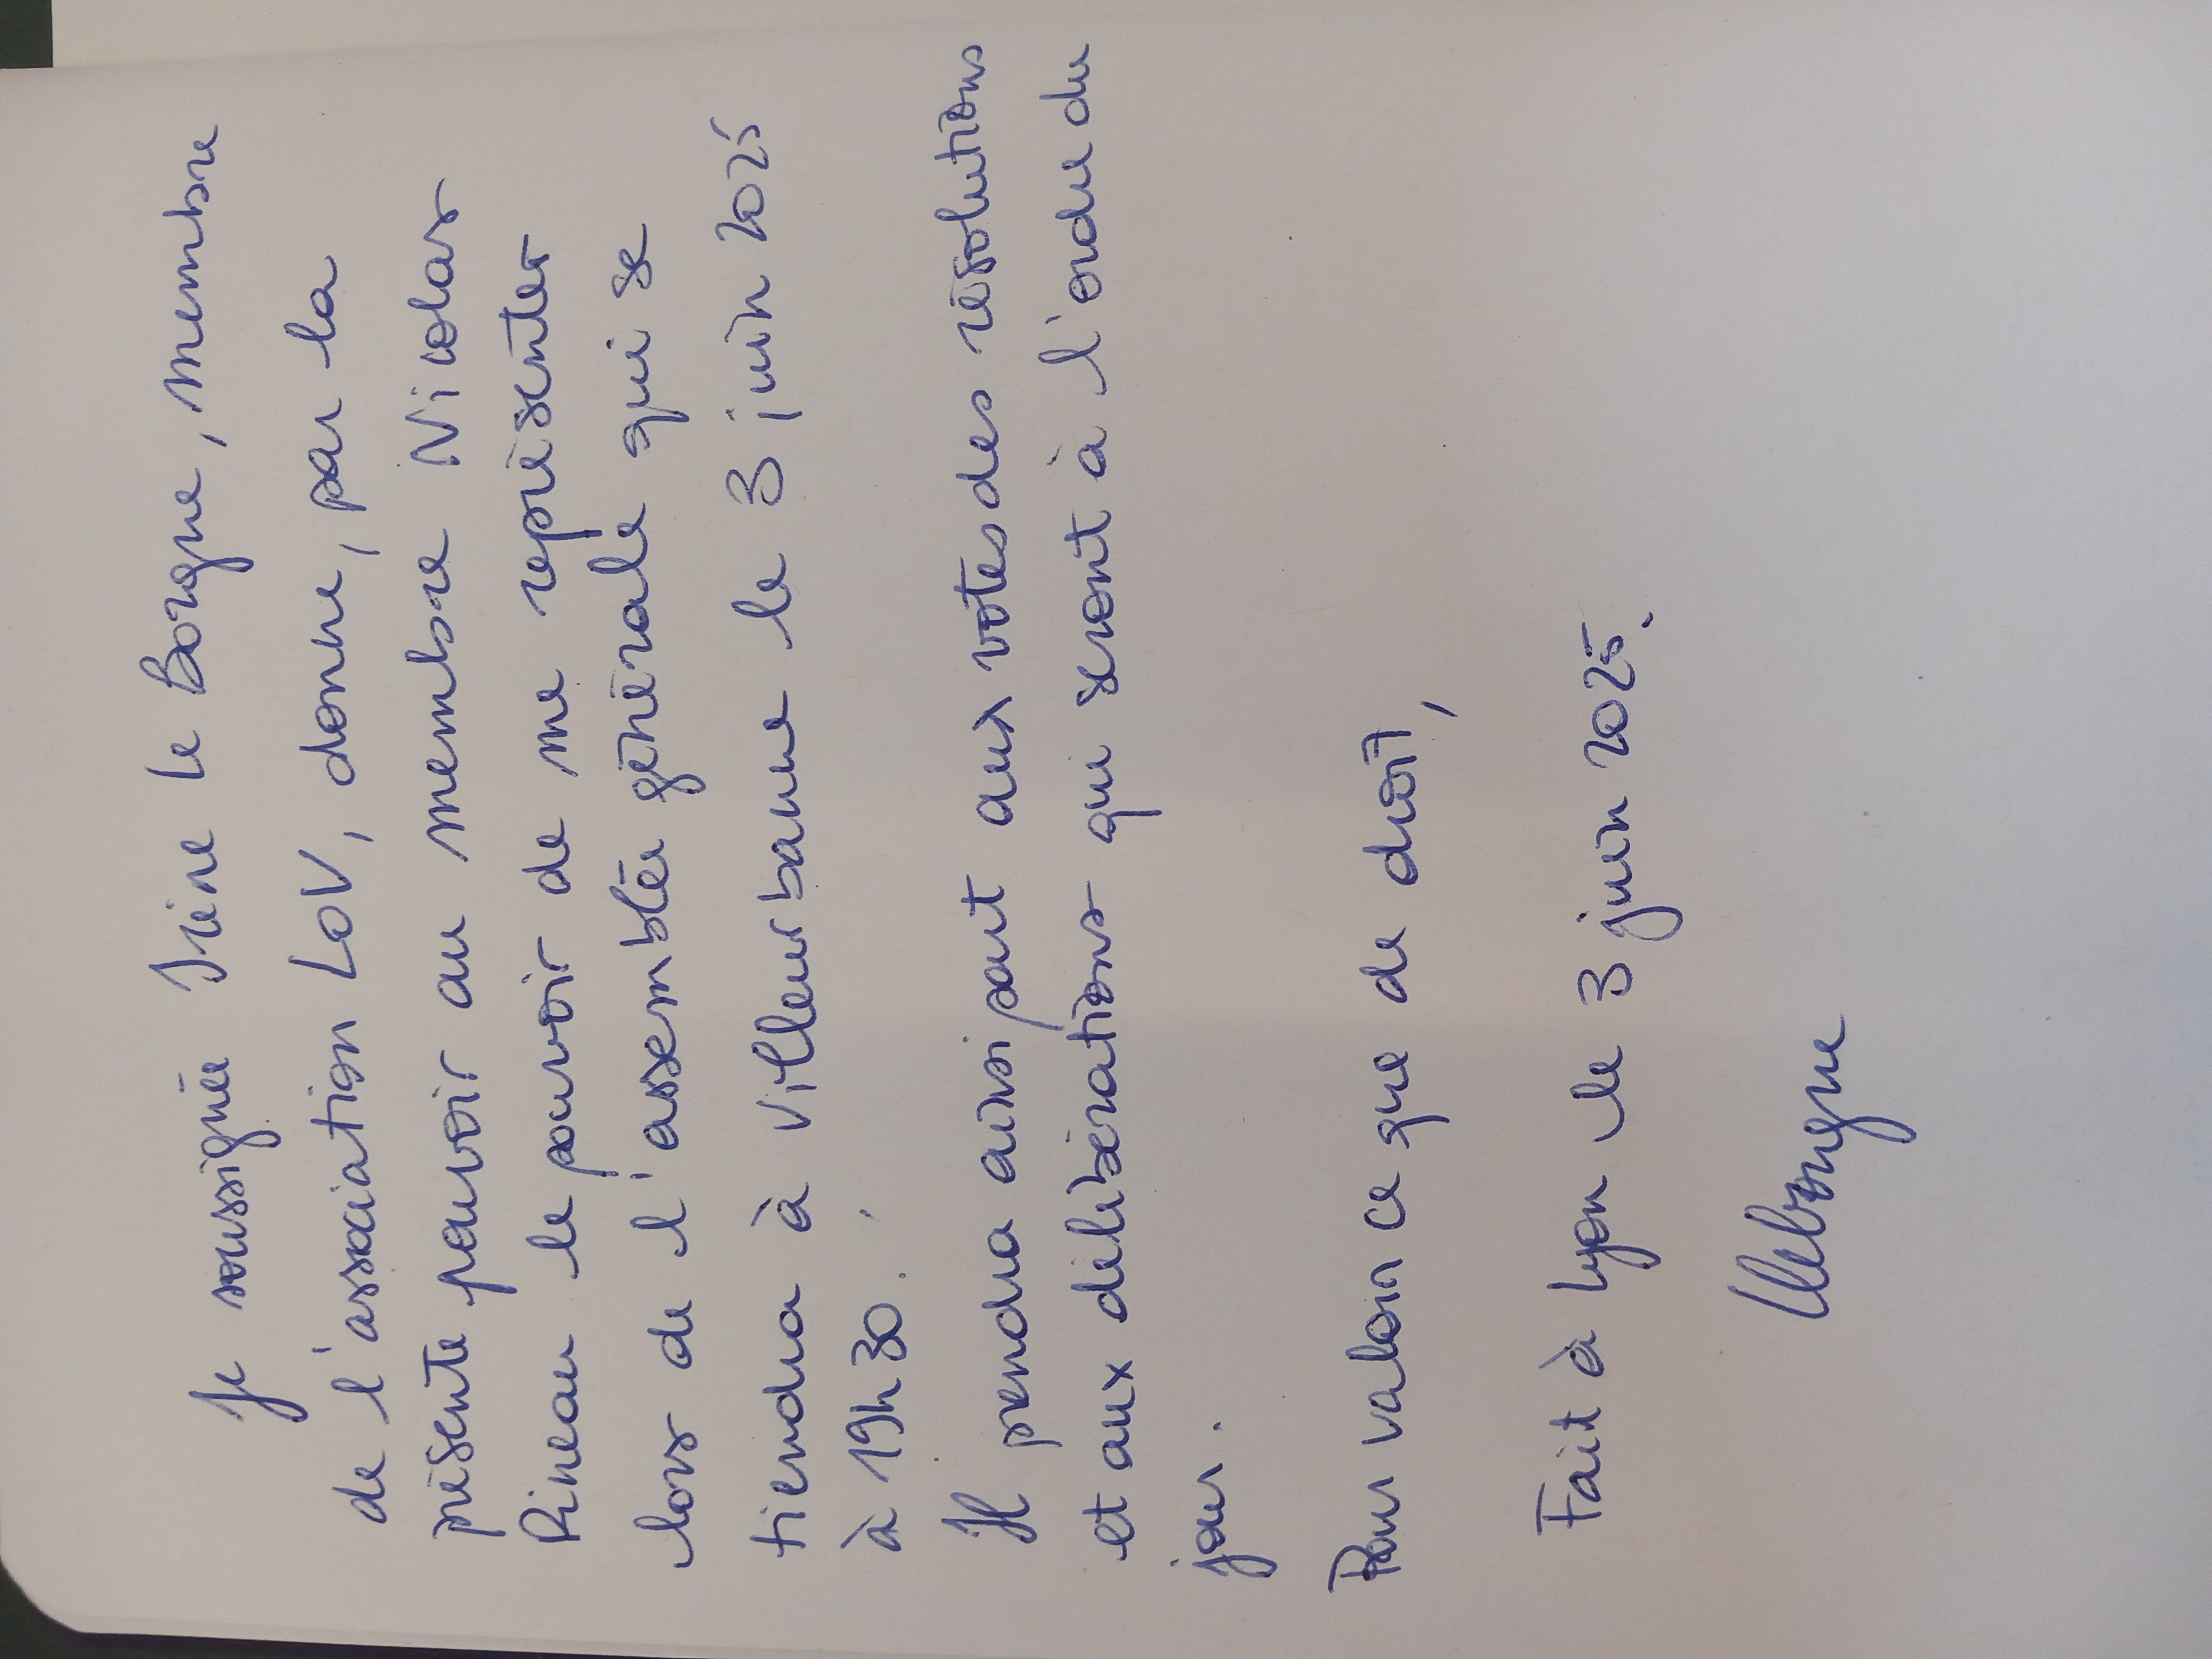 Je soussignée Irène Le Borgne, membre
de l'association LOV, donne, par la
présente pouvoir au membre Nicolas
Pineau le pouvoir de me représenter
lors de l'assemblée générale qui se
tiendra à Villeurbanne le 3 juin 2025
à 19h30.
Il prendra ainsi part aux votes des résolutions
et aux délibérations qui seront à l'ordre du
jour.
Pour valoir ce que de droit,
Fait à Lyon le 3 juin 2025.
Leborgne